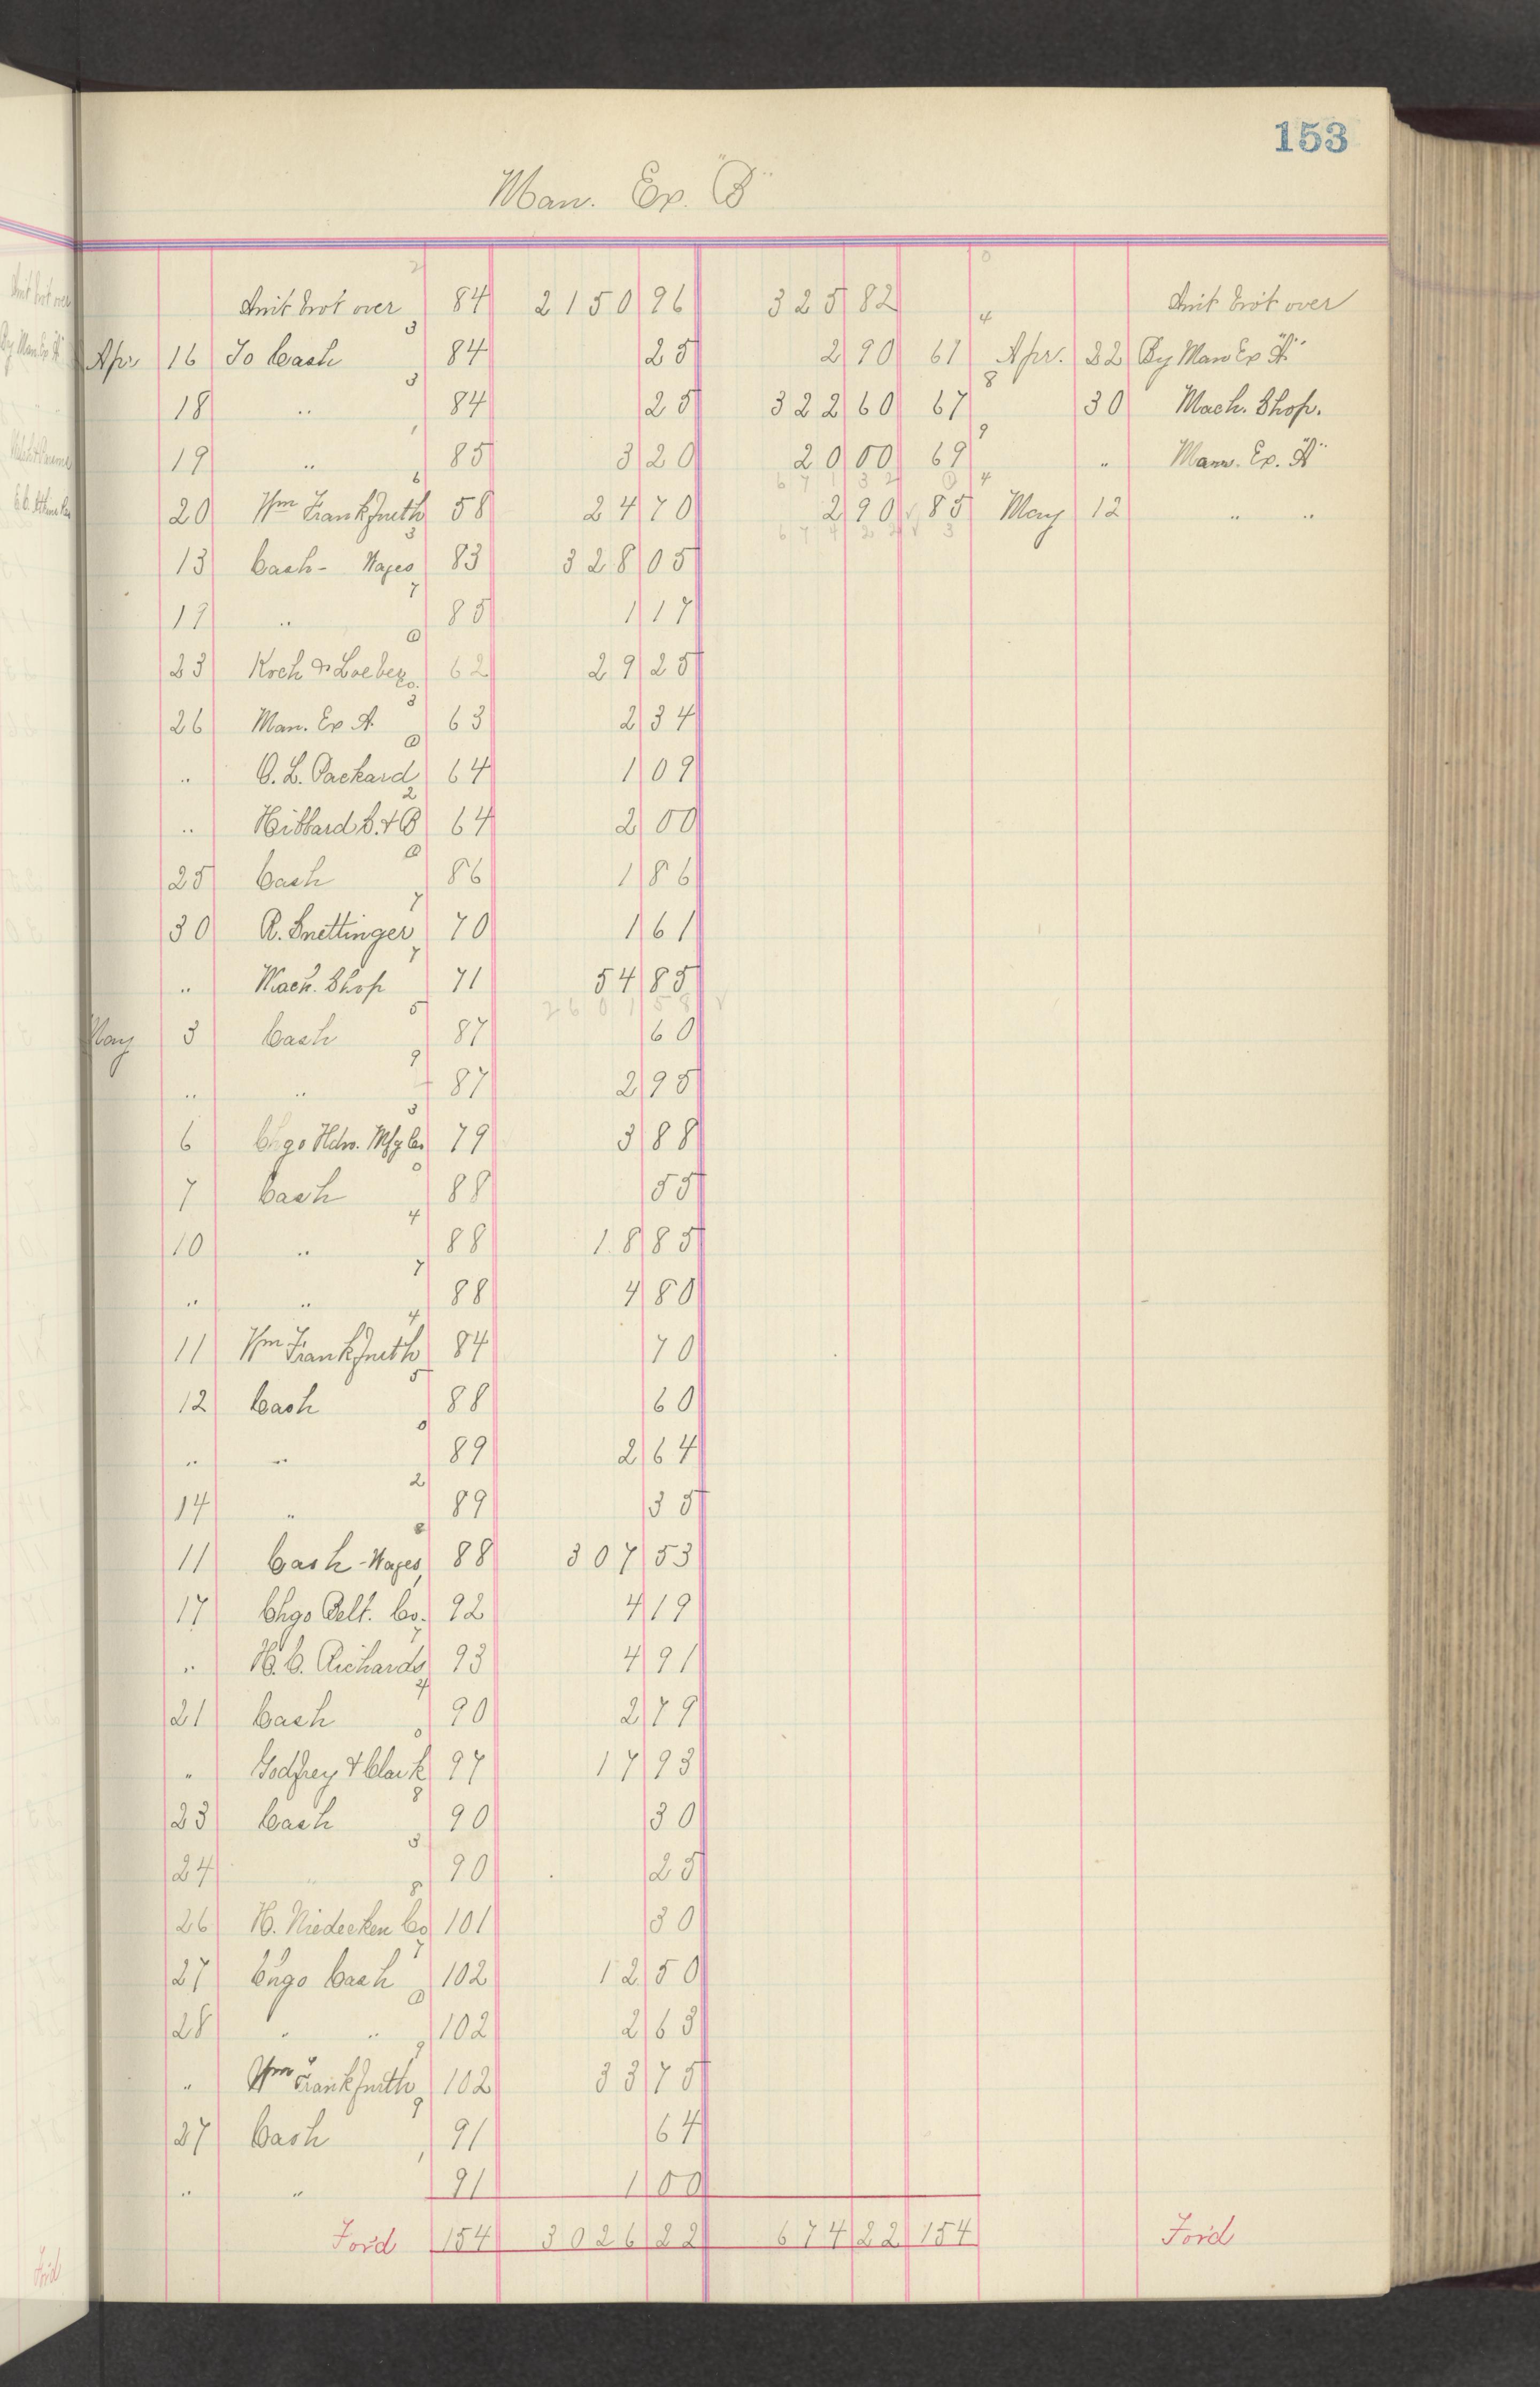 153
Man. Ex. "B"
Amt brot over 84 2150 96 325 82 Amt brot over
Apr 16 To Cash 84 25 2 90 61 Apr. 22 By Man Ex "A"
18 " 84 25 322 60 67 30 Mach. Shop.
19 " 85 3 20 20 00 69 " Man. Ex. "A"
20 Wm Frankfurth 58 24 70 2 90 85 May 12 " "
13 Cash - Wages 83 328 05
19 " 85 1 17
23 Koch & Loeber Co. 62 29 25
26 Man. Ex A. 63 2 34
" O. L. Packard 64 1 09
" Hibbard S. & B 64 2 00
25 Cash 86 1 86
30 R. Snettinger 70 1 61
" Mach. Shop 71 54 85
2601 58
May 3 Cash 87 60
" " 87 2 95
6 Chgo Hdw. Mfg Co 79 3 88
7 Cash 88 55
10 " 88 18 85
" " 88 4 80
11 Wm Frankfurth 84 70
12 Cash 88 60
" " 89 2 64
14 " 89 35
11 Cash - Wages 88 307 53
17 Chgo Belt. Co. 92 4 19
" H. C. Richards 93 4 91
21 Cash 90 2 79
" Godfrey & Clark 97 17 93
23 Cash 90 30
24 " 90 25
26 H. Niedecken Co 101 30
27 Chgo Cash 102 12 50
28 " " 102 2 63
" Wm Frankfurth 102 33 75
27 Cash 91 64
" " 91 1 00
For'd 154 3026 22 674 22 154 For'd